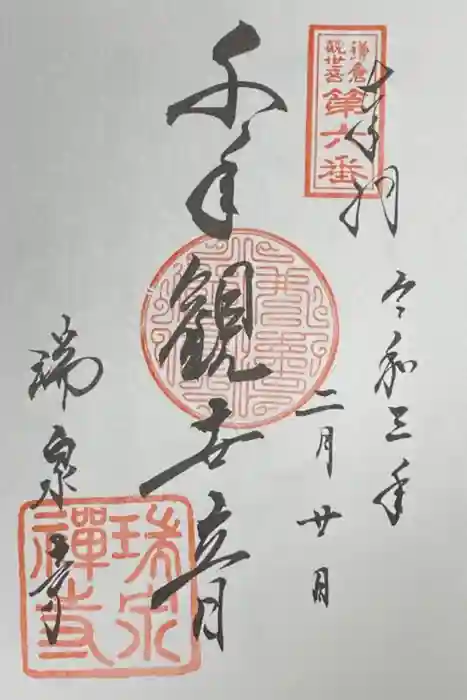 鎌倉
観世音
第六番
奉拝
令和三年
二月廿日
千手観世音
瑞泉寺
瑞泉
禅寺